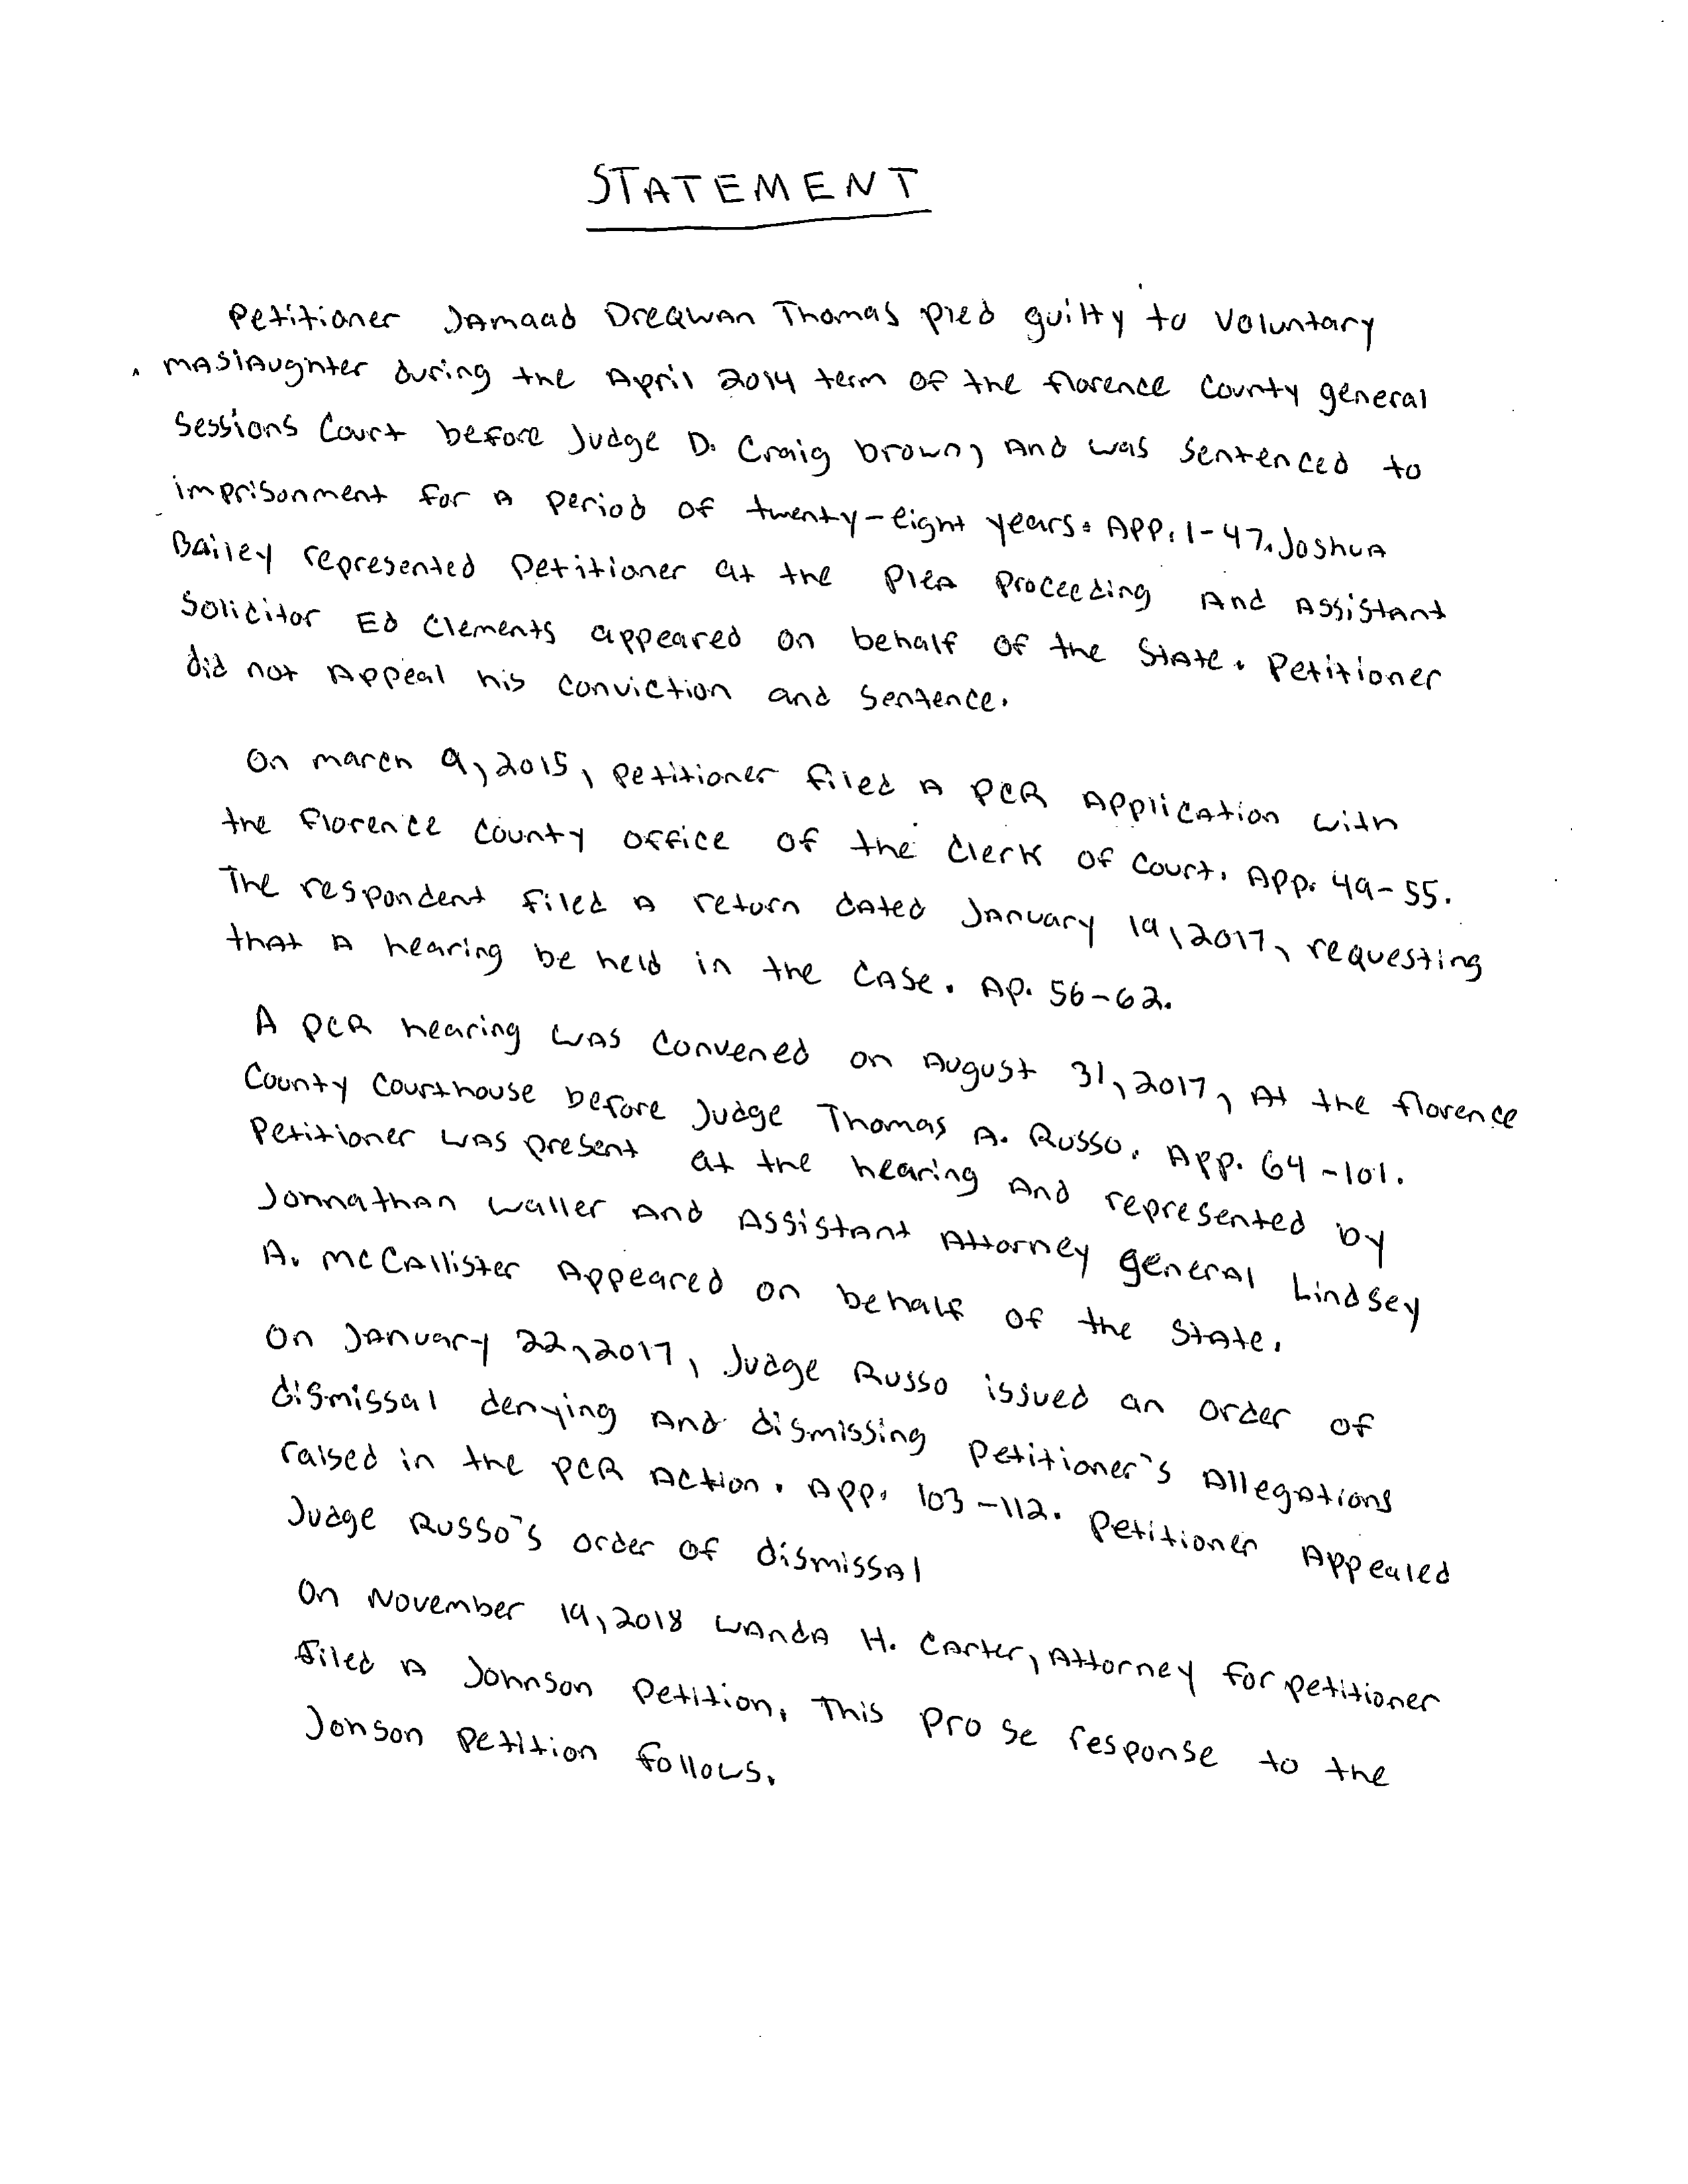 STATEMENT
Petitioner Jamaad Dreqwan Thomas pled guilty to Voluntary
maslaughter during the April 2014 term of the florence County general
Sessions Court before Judge D. Craig brown, And was sentenced to
imprisonment for A period of twenty-eight years. APP. 1-47. Joshua
Bailey represented Petitioner at the Plea Proceeding And Assistant
Solicitor Ed Clements appeared on behalf of the State. Petitioner
did not Appeal his conviction and sentence.
On march 9, 2015, petitioner filed A PCR Application with
the florence county office of the Clerk of Court. App. 49-55.
The respondent filed A return dated January 19, 2017, requesting
that A hearing be held in the Case. Ap. 56-62.
A PCR hearing was convened on August 31, 2017, At the florence
County Courthouse before Judge Thomas A. Russo. App. 64-101.
Petitioner was present at the hearing And represented by
Jonnathan Waller And Assistant Attorney general Lindsey
A. McCallister Appeared on behalf of the State.
On January 22, 2017, Judge Russo issued an order of
dismissal denying And dismissing Petitioner's Allegations
raised in the PCR Action. App. 103-112. Petitioner Appealed
Judge Russo's order of dismissal
On November 19, 2018 Wanda H. Carter, Attorney for petitioner
filed A Johnson Petition. This Pro se response to the
Jonson Petition follows.